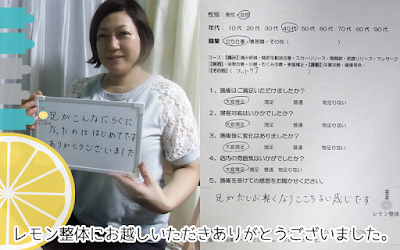 足がこんなにらくに
なったのははじめてです
ありがとうございました
性別 : 男性 ・ 女性
年代 : 10代 20代 30代 40代 50代 60代 70代 80代 90代
1、施術はご満足いただけましたか？
大変満足 満足 普通 物足りない
2、接客対応はいかがでしたか？
大変満足 満足 普通 物足りない
3、施術後に変化はありましたか？
大変満足 満足 普通 物足りない
4、店内の雰囲気はいかがでしたか？
大変満足 満足 普通 物足りない
5、施術を受けての感想をお聞かせください。
足がだいぶ軽くなりここちよい感じです
レモン整体
レモン整体にお越しいただきありがとうございました。